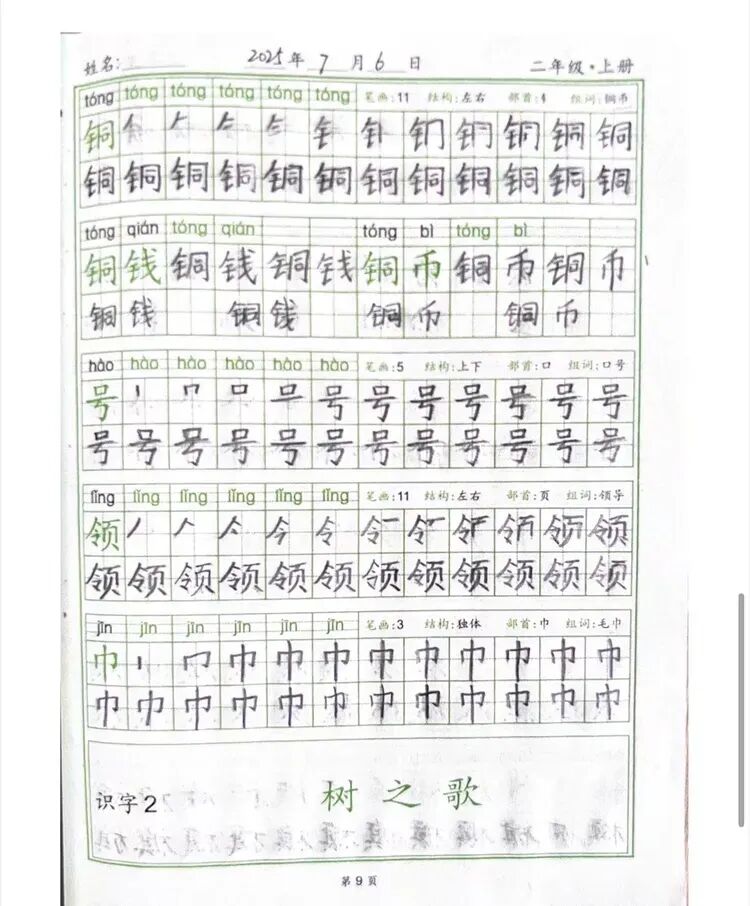 姓名: 2025年 7月6日 二年级·上册
tóng tóng tóng tóng tóng tóng 笔画:11 结构:左右 部首:钅 组词:铜币
铜 钅 铜
铜 铜 铜 铜 铜 铜 铜 铜 铜 铜 铜 铜
tóng qián tóng qián tóng bì tóng bì
铜 钱 铜 钱 铜 钱 铜 币 铜 币 铜 币
铜 钱 铜 钱 铜 币 铜 币
hào hào hào hào hào hào 笔画:5 结构:上下 部首:口 组词:口号
号 丨 口 号 号 号 号 号 号 号
号 号 号 号 号 号 号 号 号 号 号 号
lǐng lǐng lǐng lǐng lǐng lǐng 笔画:11 结构:左右 部首:页 组词:领导
领 丿 人 今 令 领
领 领 领 领 领 领 领 领 领 领 领 领
jīn jīn jīn jīn jīn jīn 笔画:3 结构:独体 部首:巾 组词:毛巾
巾 丨 冂 巾 巾 巾 巾 巾 巾 巾 巾 巾
巾 巾 巾 巾 巾 巾 巾 巾 巾 巾 巾 巾
识字2 树之歌
第9页